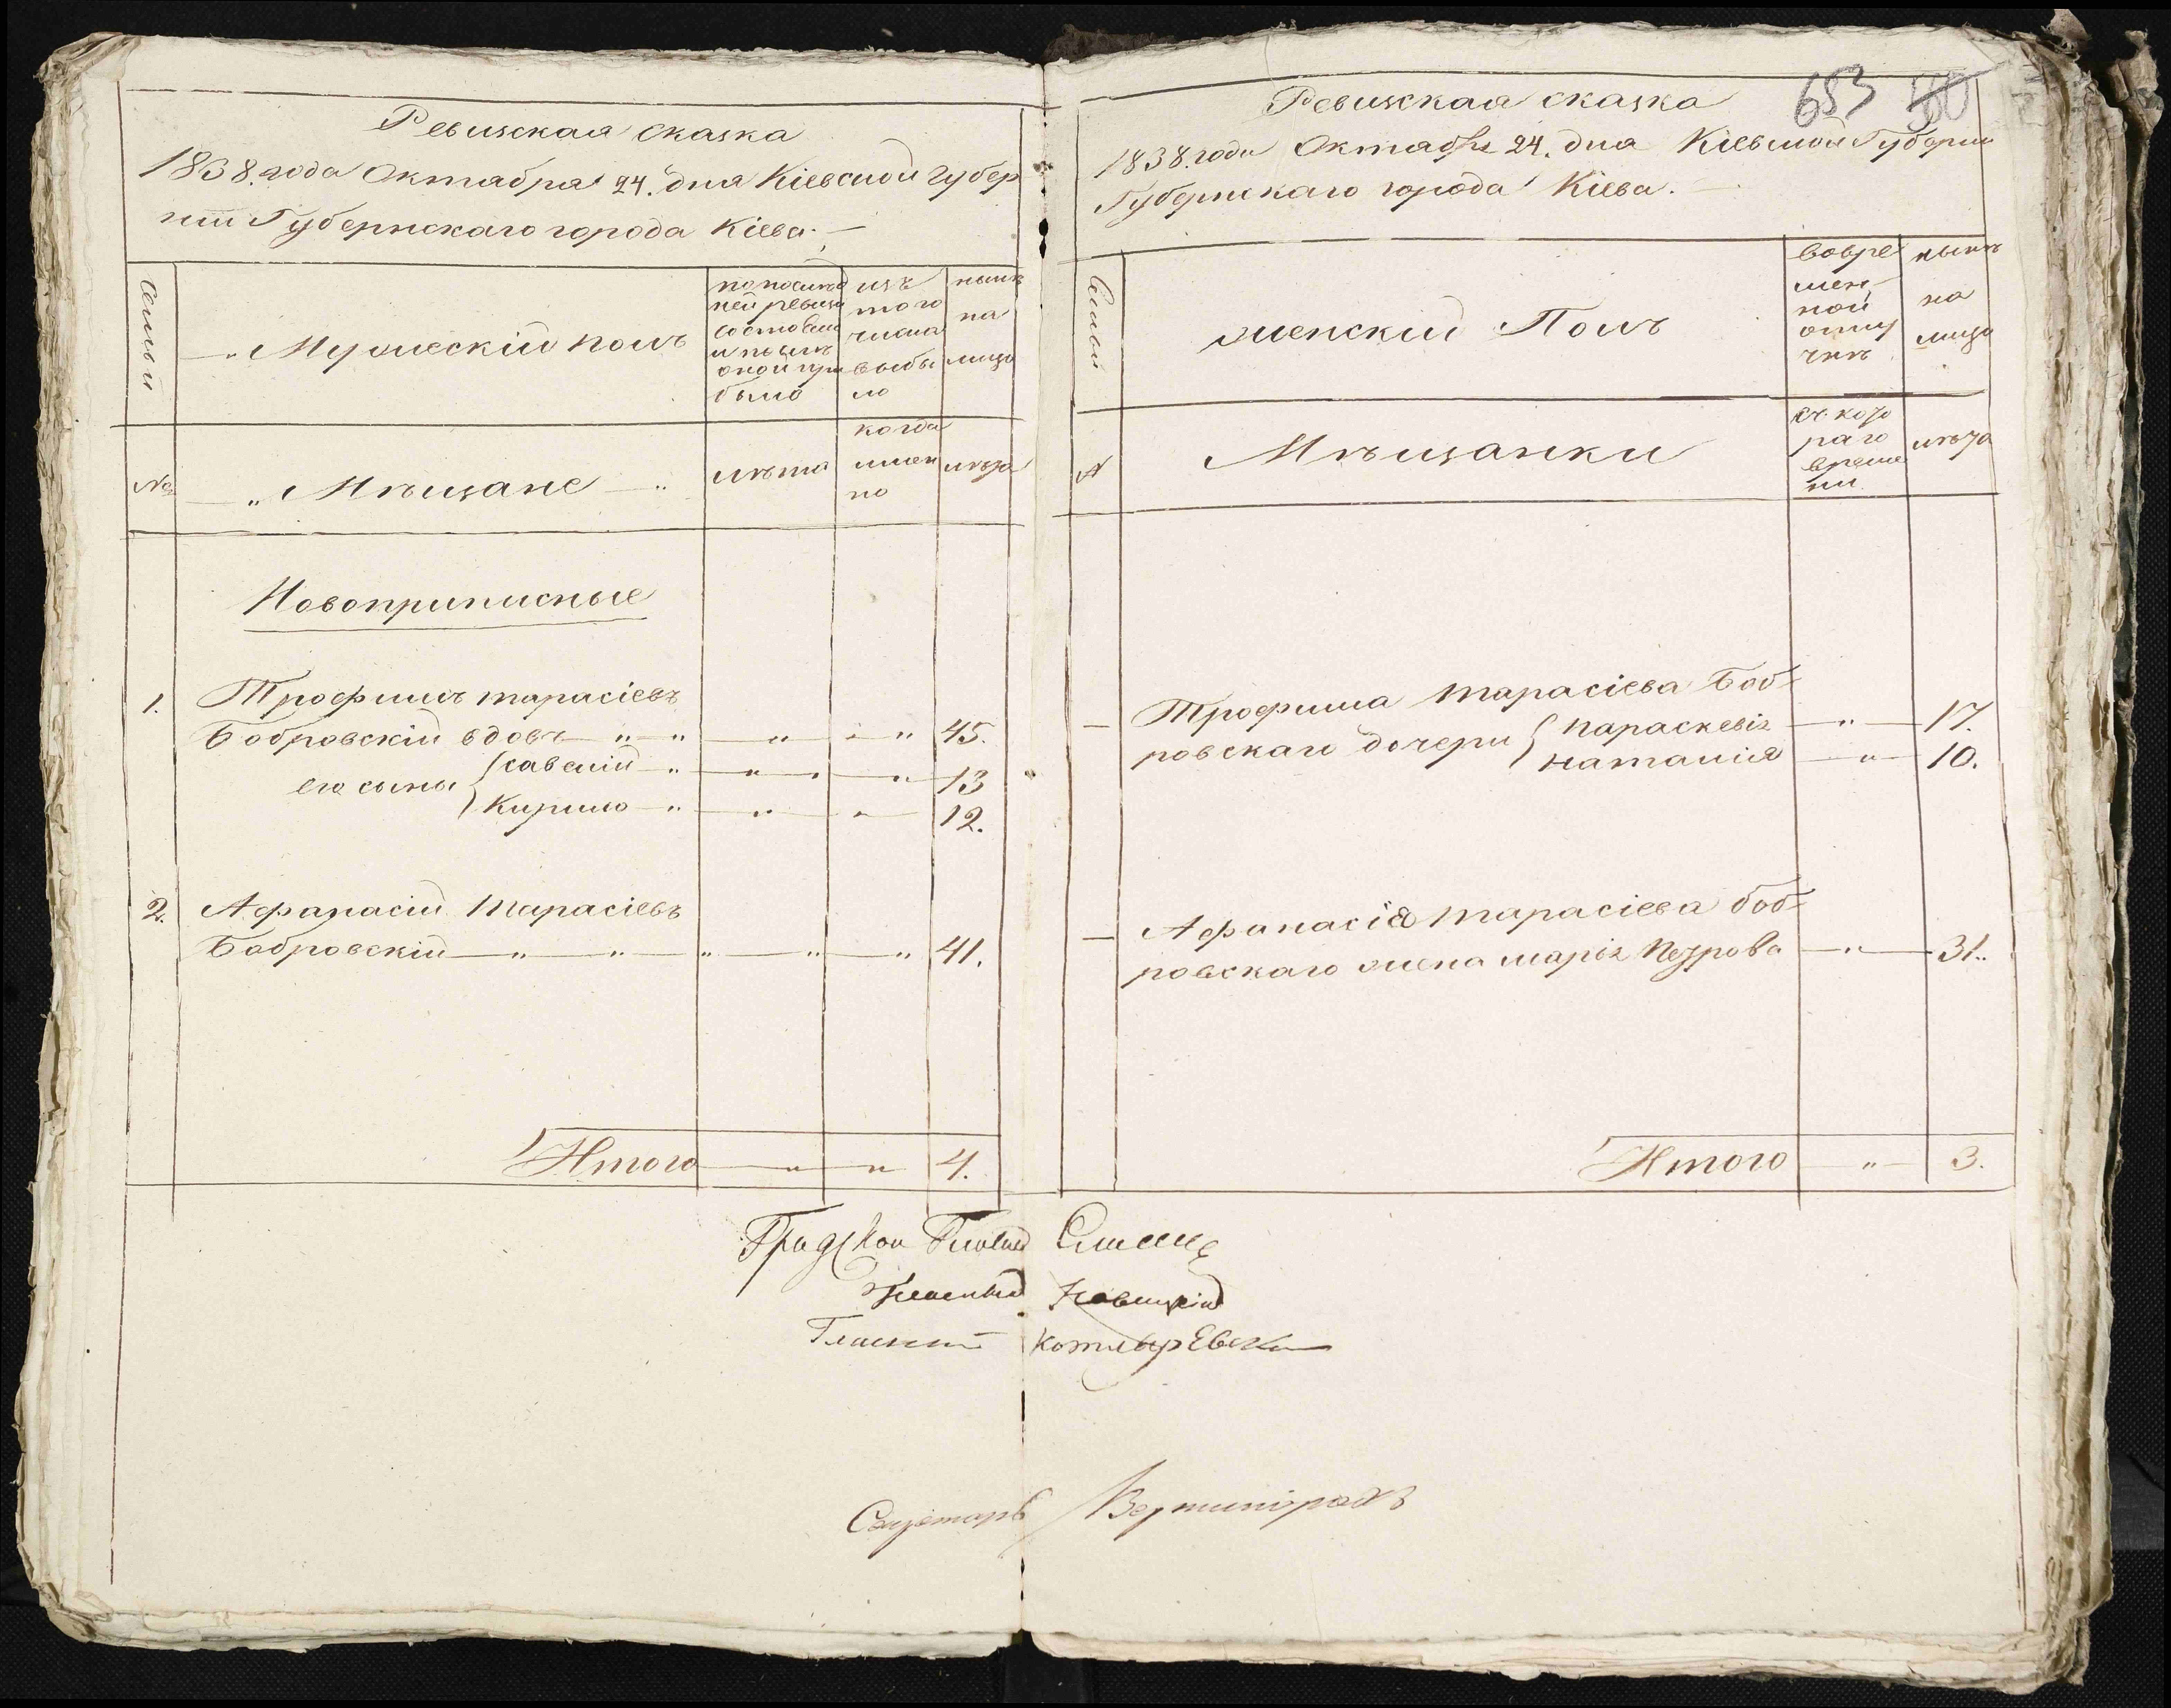 Ревизская сказка
1838. года Октабра 24. дня Кіевской Губер
ніи Губернскаго города Кіева.
Семьи
Мужескій полъ
по послѣд
ней ревизи
состояли
и послѣ
оной при
было
изъ
того
числа
выбы
ло
нынѣ
на
лицо
№
Мѣщане
лѣта
когда
имен
но
лѣта
Новоприписные
1. Трофимъ Тарасіевъ
Бобровскій вдовъ 45.
его сыны Савелій 13
Кирило 12.
2. Афанасій Тарасіевъ
Бобровскій 41.
Итого 4.
653 50
Ревизская сказка
1838. года Октабра 24. дня Кіевской Губерніи
Губернскаго города Кіева.
Семьи
женскій Полъ
вовре
мен
ной
отлу
чкѣ
нынѣ
на
лицо
Мѣщанки
съ кото
раго
време
ни
лѣта
Трофима Тарасіева Боб
ровскаго дочери Параскевія 17.
Наталія 10.
Афанасія Тарасіева Боб
ровскаго жена Марія Петрова 31.
Итого 3.
Градской Глава
Гласный Новицкій
Гласный Котляревски
Секретарь